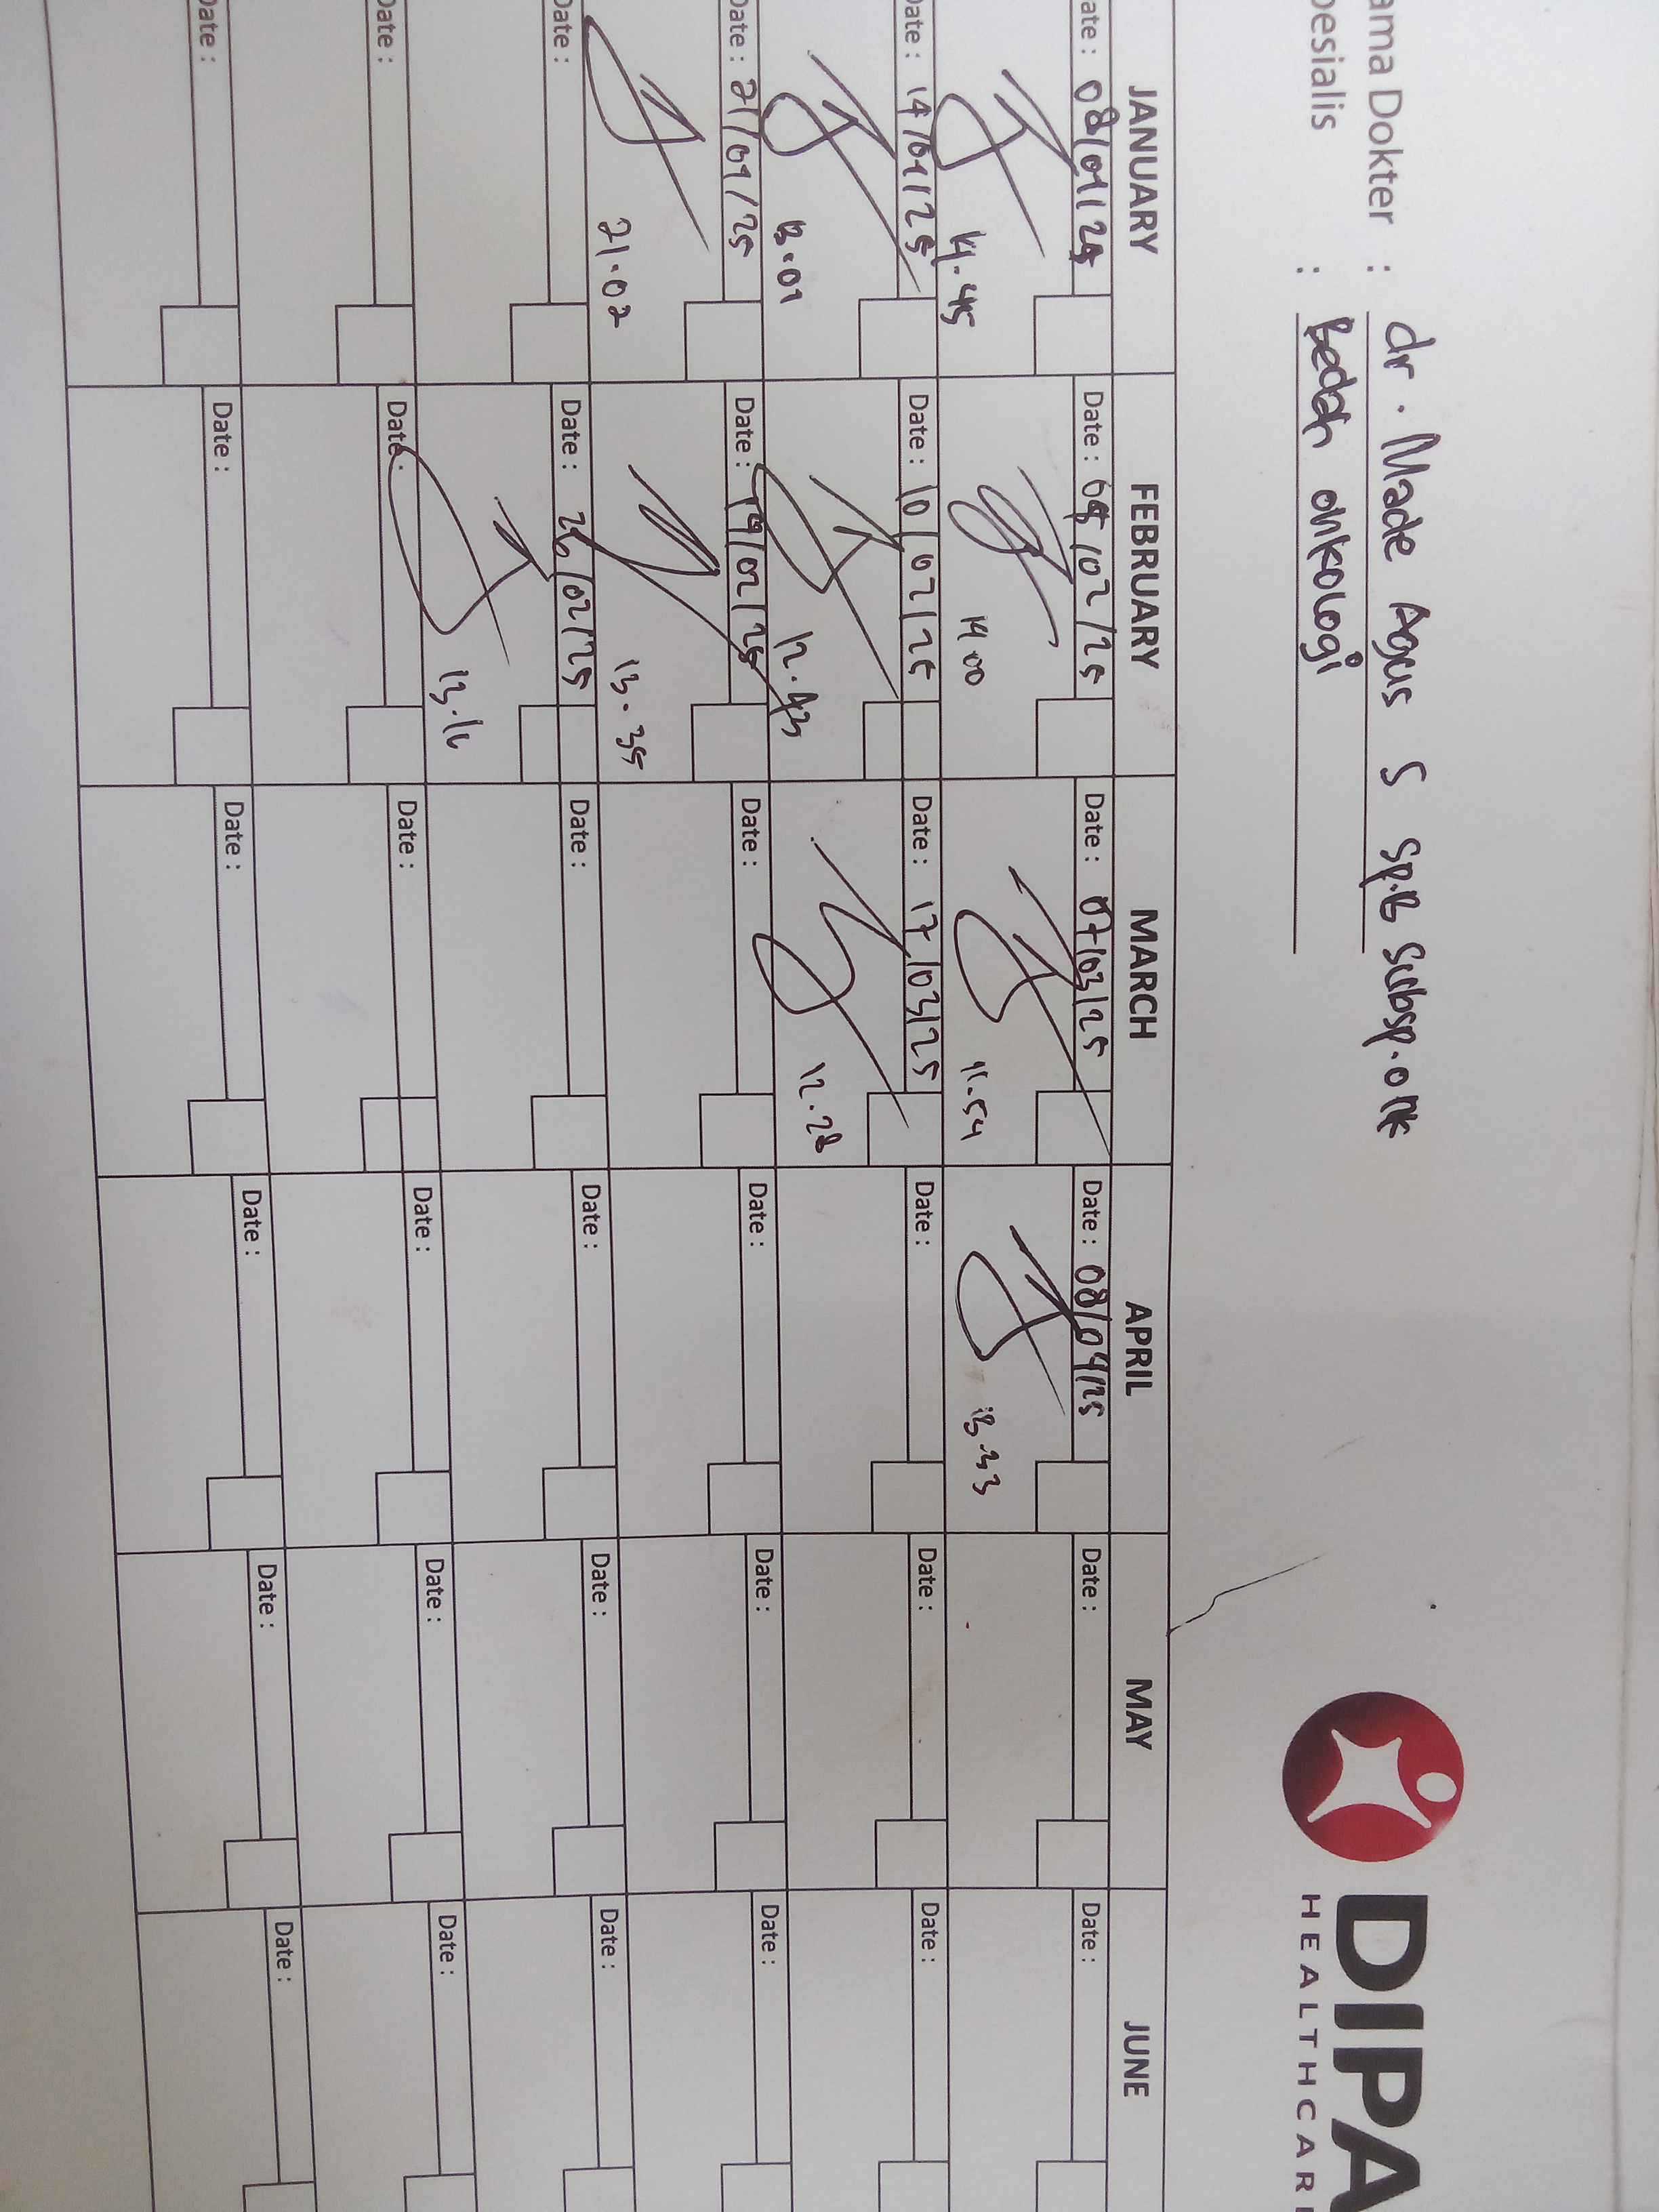 ama Dokter : dr. Made Agus S Sp.B Subsp.onk
pesialis : Bedah onkologi
DIPA
HEALTHCAR
JANUARY FEBRUARY MARCH APRIL MAY JUNE
ate : 08/01/25 Date : 04/02/25 Date : 07/03/25 Date : 08/04/25 Date : Date :
14.45 14.00 11.54 13.33
Date : 14/01/25 Date : 10/02/25 Date : 17/03/25 Date : Date : Date :
13.01 12.43 12.28
Date : 21/01/25 Date : 19/02/25 Date : Date : Date : Date :
21.02 13.35
Date : Date : 26/02/25 Date : Date : Date : Date :
13.16
Date : Date : Date : Date : Date : Date :
Date : Date : Date : Date : Date : Date :